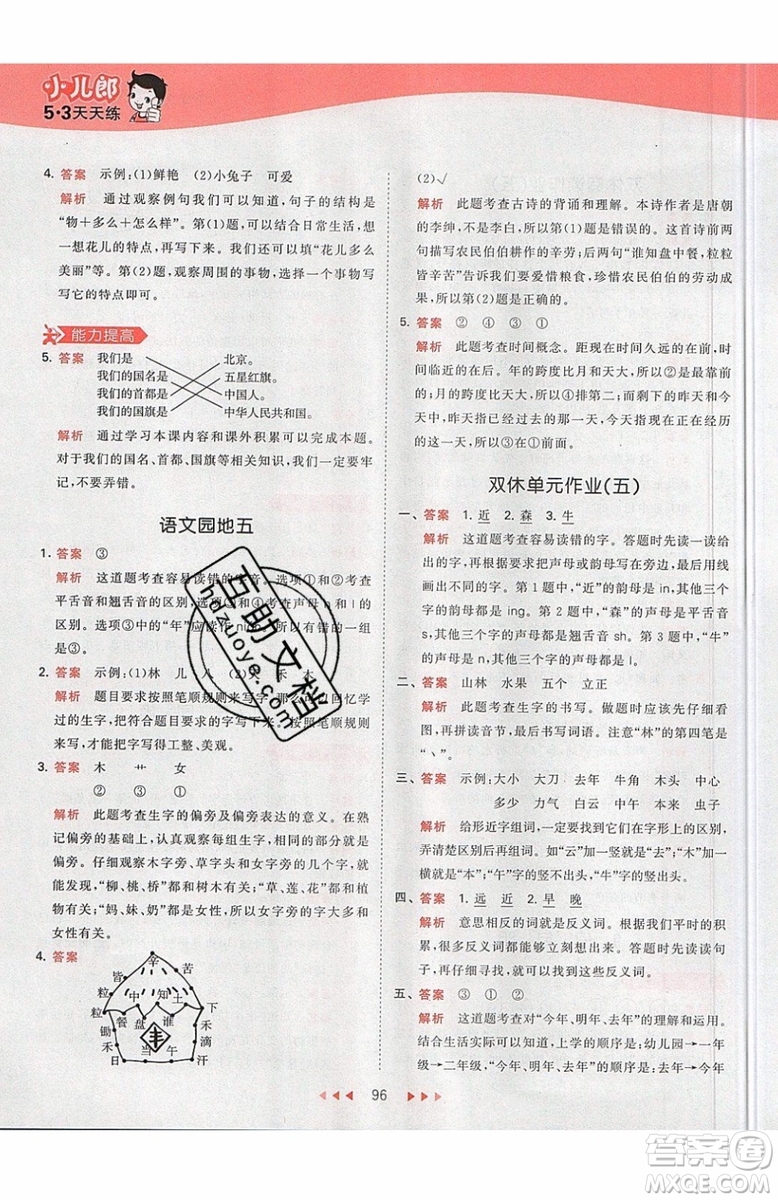 小儿郎
5·3天天练
4. 答案 示例:(1)鲜艳 (2)小兔子 可爱
解析 通过观察例句我们可以知道,句子的结构是
“物+多么+怎么样”。第(1)题,可以结合日常生活,想
一想花儿的特点,写写花儿的样子,如“花儿多么
美丽”等。第(2)题,观察周围的事物,选择一个事物写
写它的特点即可。
能力提高
5. 答案 我们是 北京。
我们的国名是 五星红旗。
我们的首都是 中国人。
我们的国旗是 中华人民共和国。
解析 通过学习本课内容和课外积累可以完成本题。
对于我们的国名、首都、国旗等相关知识,我们一定要牢
记,不要弄错。
语文园地五
1. 答案 ③
解析 这道题考查容易读错的字音。选项①和②考查
平舌音和翘舌音的区别,选项③和④考查声母 n 和 l 的
区别。选项③中的“年”应读作
,所以有错的一组
是③。
2. 答案 示例:(1)林 儿 八 (2)
禾 木
解析 题目要求按照笔顺规则写字,我们可以回忆学
过的字,把符合要求的字写下来。按照笔顺规则写
字,可以把字写得工整、美观。
3. 答案 木 艹 女
② ③ ①
解析 此题考查生字的偏旁及偏旁表达的意义。在熟
记偏旁的基础上,认真观察每组生字,找出相同的部分就是
偏旁。仔细观察木字旁、草字头和女字旁的几个字,就
能发现:“柳、桃、桥”都和树木有关,“草、莲、花”都和植
物相关,“妈、妹、奶”都是女性,所以女字旁的字大多和
女性有关。
4. 答案
辛
皆 苦
粒 中 知 土 下
粒 餐 盘 谁 禾
锄 丰 滴
禾 日 当 午 汗
(2)√
解析 此题考查古诗的背诵和理解。本诗作者是唐朝
的李绅,不是李白,所以第(1)题是错误的。这首诗前两
句描写农民伯伯耕作的辛劳;后两句“谁知盘中餐,粒粒
皆辛苦”告诉我们要爱惜粮食,珍惜农民伯伯的劳动成
果,所以第(2)题是正确的。
5. 答案 ② ④ ③ ①
解析 此题考查时间概念。距现在时间久远的在前
面,时间近的在后面。年的跨度最大,所以②应排在最前
的;月的跨度比天大,所以④排第二;而剩下的昨天和
今天中,昨天是已经过去的一天,今天是正在经历的一
天,所以③在①前面。
双休单元作业(五)
一、答案 1. 近 2. 森 3. 牛
解析 这道题考查容易读错的字音。答题时先读一读
每组的字,找一找它们的韵母或声母的不同之处,再用线画
出不同的字。第 1 题中,“近”的韵母是 in,其他
三个字的韵母都是 ing。第 2 题中,“森”的声母是平舌音
s,其他三个字的声母都是翘舌音 sh。第 3 题中,“牛”
的声母是 n,其他三个字的声母都是 l。
二、答案 山林 水果 五个 立正
解析 此题考查生字的书写。做题时应该先仔细看
图,再读拼音,最后书写词语。注意“林”的第四笔是
“丶”。
三、答案 示例:大小 大刀 去年 牛角 木头 中心
多少 力气 白云 中午 本来 虫子
解析 给形近字组词,一定要注意它们在字形上的区别,
弄清楚它们的意思。如“云”加一竖变成“去”;“木”加一
横就是“本”;“午”字一竖出头变成“牛”等。
四、答案 1. 远 近 2. 早 晚
解析 意思相反的词就是反义词。我们根据平时的积
累,很多反义词能够立刻想出来。答题时先读读句
子,再仔细寻找,就可以发现这些反义词。
五、答案 ③ ① ②
解析 这道题考查对“今年、明年、去年”的理解和运用。
结合生活实际可以知道,上学的顺序是:幼儿园→一年
级→二年级,“今年、明年、去年”的顺序是:去年→今年
96
互助文档
hdzuoye.com
答案圈
MXQE.COM